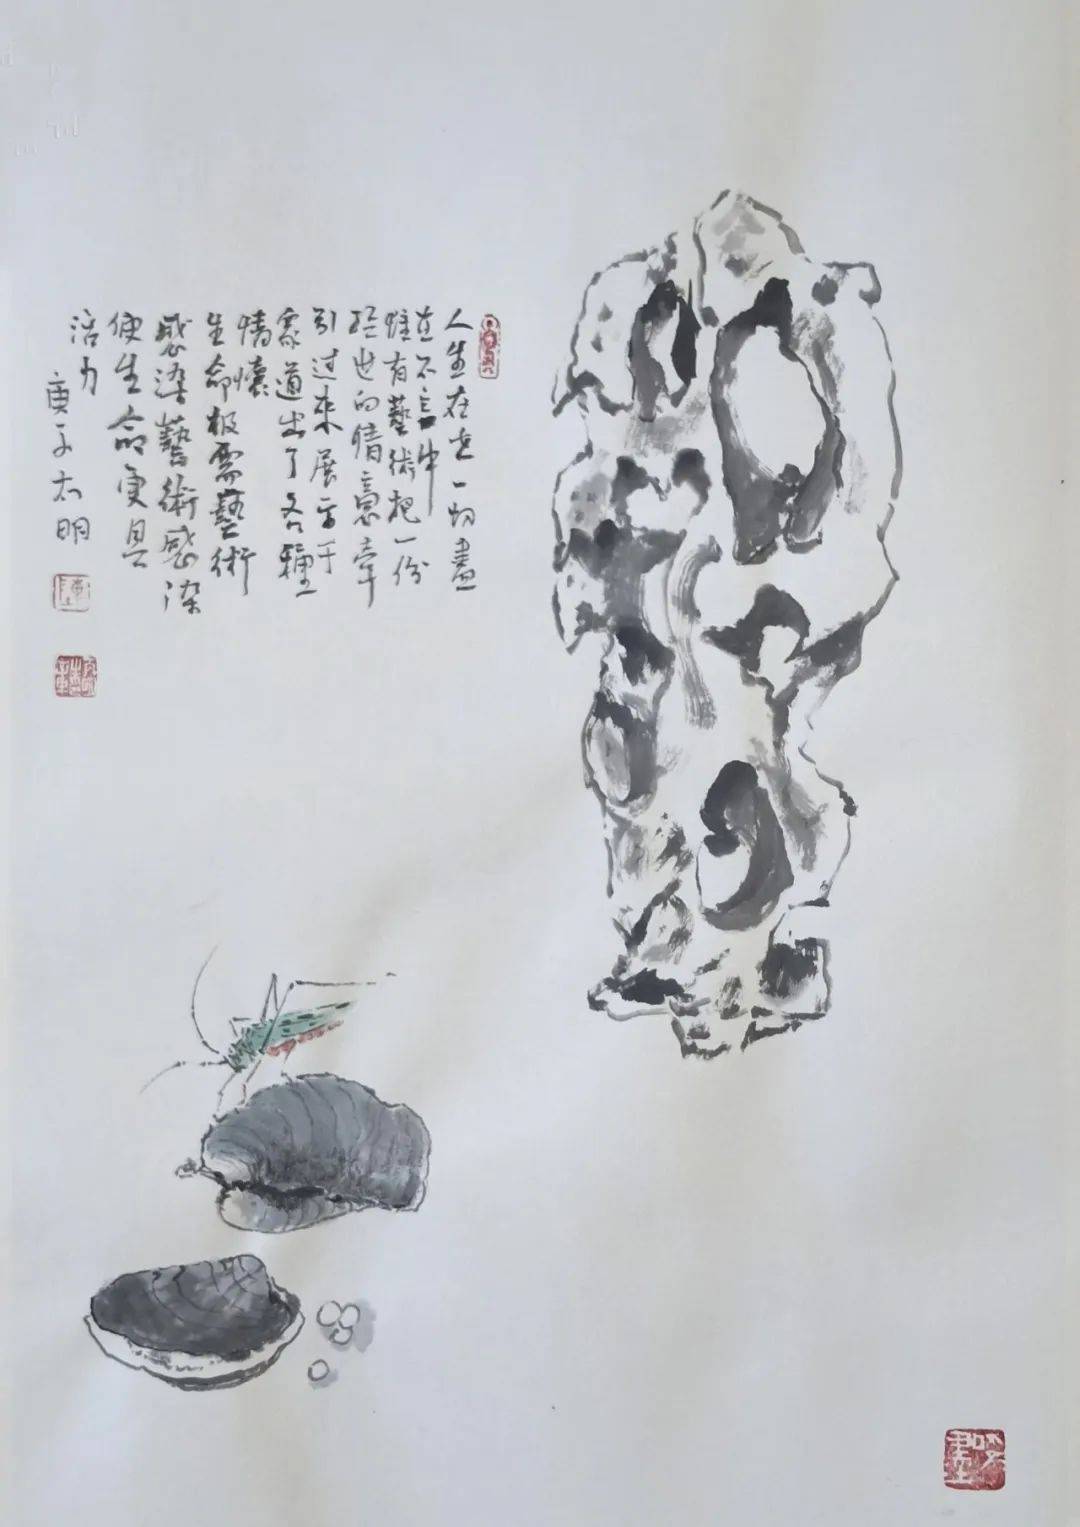 人生在世一切盡
在不言中
惟有藝術把一份
绝世的情意牽
引过来展示于
衆道出了各種
情懷
生命极需藝術
感染藝術感染
使生命更具
活力
庚子太明